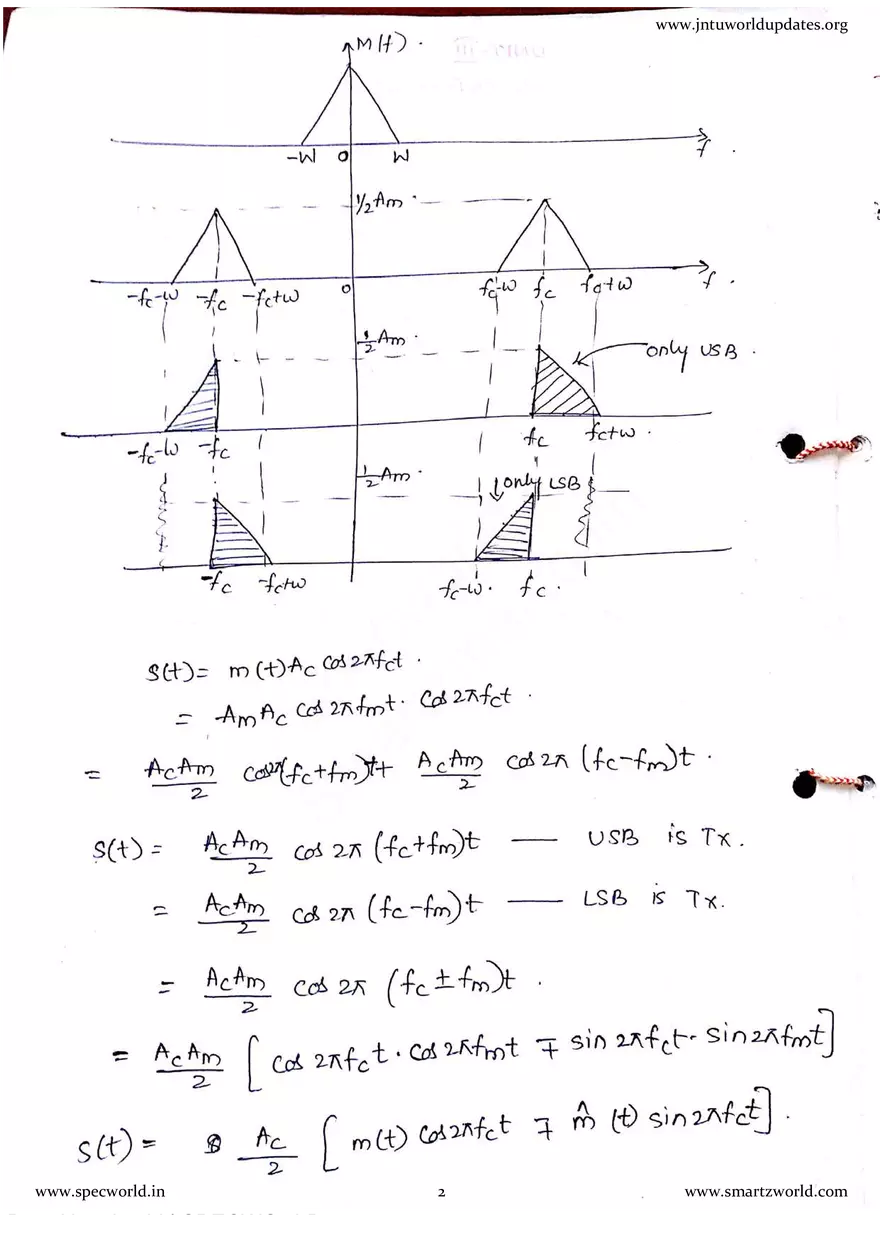 www.jntuworldupdates.org
M(f).
-W 0 W f.
1/2 Am
-fc-w -fc -fc+w 0 fc-w fc fc+w f.
1/2 Am.
only USB.
-fc-w -fc fc fc+w.
1/2 Am.
only LSB
-fc -fc+w fc-w. fc.
S(t) = m(t) Ac cos 2πfct.
= Am Ac cos 2πfmt. cos 2πfct.
= AcAm/2 cos 2π(fc+fm)t + AcAm/2 cos 2π (fc-fm)t.
S(t) = AcAm/2 cos 2π (fc+fm)t — USB is Tx.
= AcAm/2 cos 2π (fc-fm)t — LSB is Tx.
= AcAm/2 cos 2π (fc ± fm)t.
= AcAm/2 [cos 2πfct. cos 2πfmt ∓ sin 2πfct. sin 2πfmt]
S(t) = Ac/2 [m(t) cos 2πfct ∓ m̂(t) sin 2πfct].
www.specworld.in 2 www.smartzworld.com